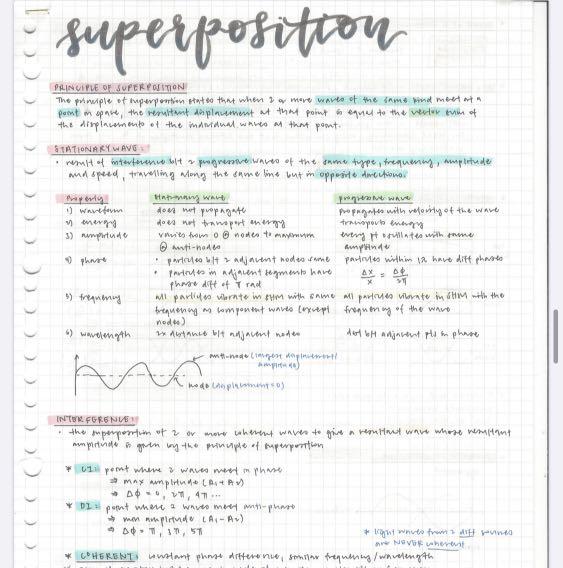 superposition
PRINCIPLE OF SUPERPOSITION
The principle of superposition states that when 2 or more waves of the same kind meet at a
point in space, the resultant displacement at that point is equal to the vector sum of
the displacements of the individual waves at that point.
STATIONARY WAVE:
• result of interference b/t 2 progressive waves of the same type, frequency, amplitude
and speed, travelling along the same line but in opposite directions.
Property stationary wave progressive wave
1) waveform does not propagate propagates with velocity of the wave
2) energy does not transport energy transports energy
3) amplitude varies from 0 @ nodes to maximum every pt oscillates with same
@ anti-nodes amplitude
4) phase • particles b/t 2 adjacent nodes same particles within 1λ have diff phases
• particles in adjacent segments have Δx/λ = Δφ/2π
phase diff of π rad
5) frequency all particles vibrate in SHM with same all particles vibrate in SHM with the
frequency as component waves (except frequency of the wave
nodes)
6) wavelength 2x distance b/t adjacent nodes dist b/t adjacent pts in phase
anti-node (largest displacement/
amplitude)
node (displacement=0)
INTERFERENCE:
• the superposition of 2 or more coherent waves to give a resultant wave whose resultant
amplitude is given by the principle of superposition
* CI: point where 2 waves meet in phase
⇒ max amplitude (A₁+A₂)
⇒ Δφ = 0, 2π, 4π ...
* DI: point where 2 waves meet anti-phase
⇒ min amplitude (A₁-A₂)
⇒ Δφ = π, 3π, 5π
* light waves from 2 diff sources
are NEVER coherent
* COHERENT: constant phase difference, similar frequency/wavelength